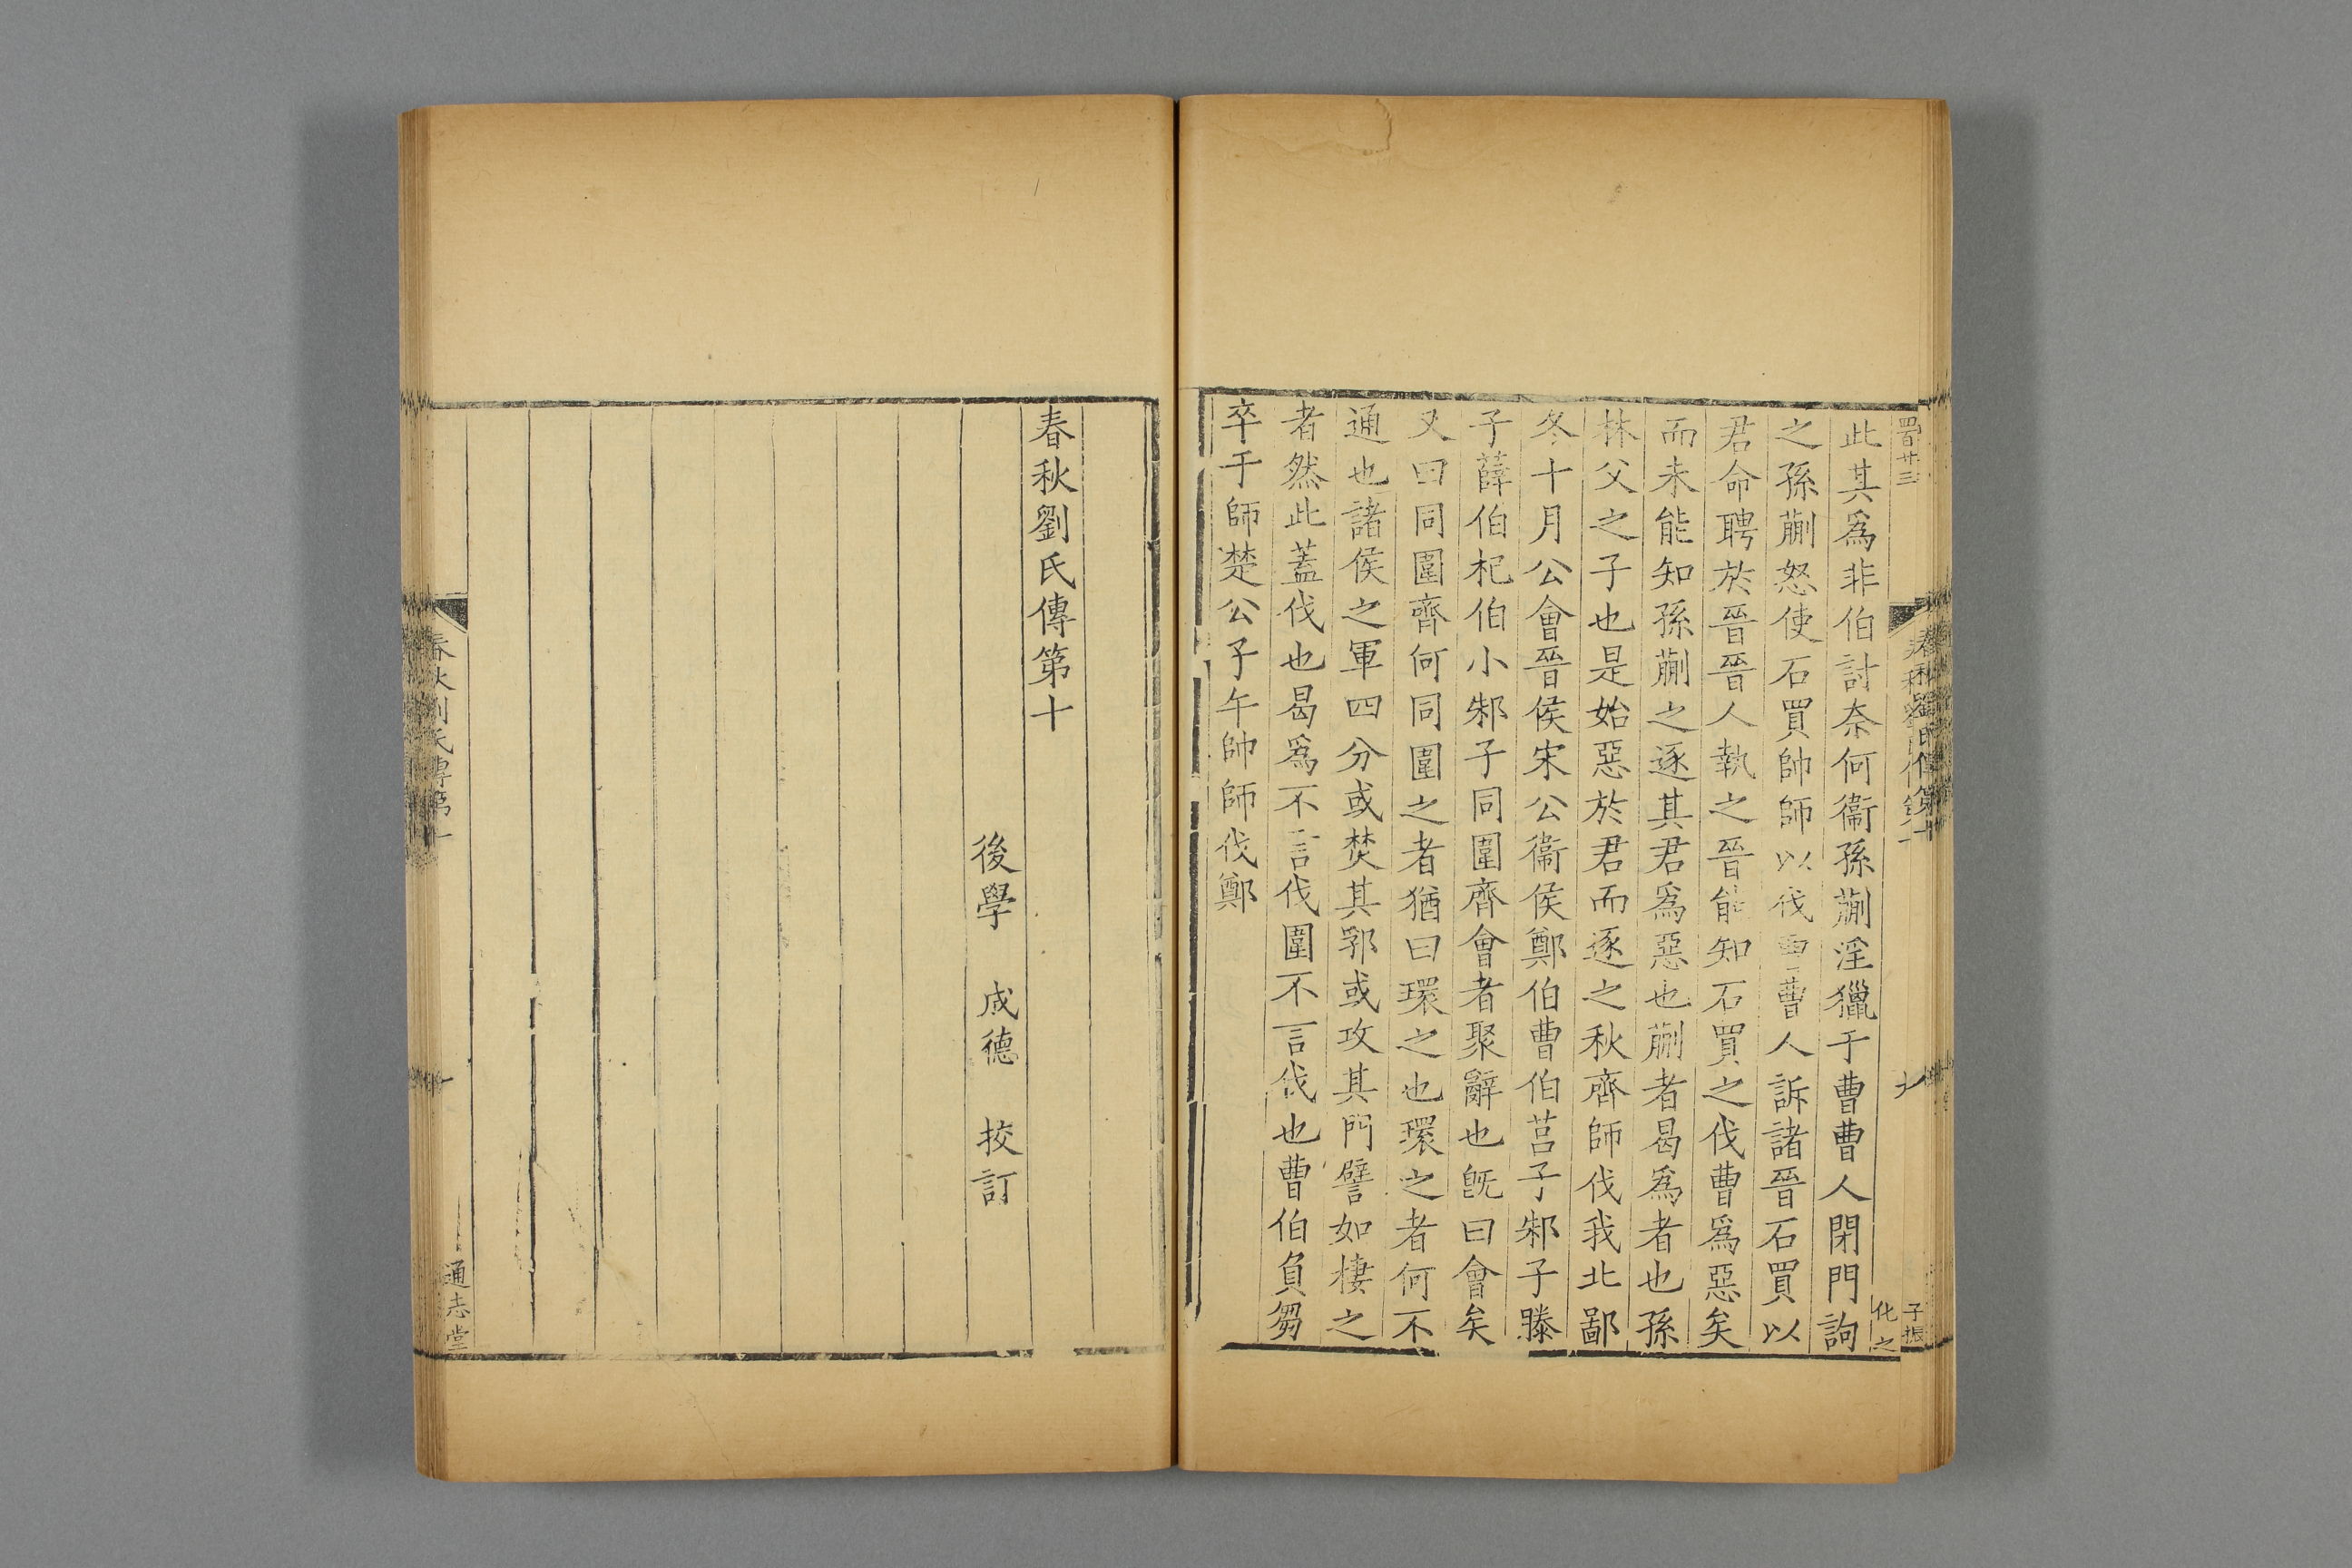 此其爲非伯討奈何衞孫蒯淫獵于曹曹人閉門詢
之孫蒯怒使石買帥師以伐曹曹人訴諸晉石買以
君命聘於晉晉人執之晉能知石買之伐曹爲惡矣
而未能知孫蒯之逐其君爲惡也蒯者曷爲者也孫
林父之子也是始惡於君而逐之秋齊師伐我北鄙
冬十月公會晉侯宋公衞侯鄭伯曹伯莒子邾子滕
子薛伯杞伯小邾子同圍齊會者聚辭也旣曰會矣
又曰同圍齊何同圍之者猶曰環之也環之者何不
通也諸侯之軍四分或焚其郛或攻其門譬如棲之
者然此蓋伐也曷爲不言伐圍不言伐也曹伯負芻
卒于師楚公子午帥師伐鄭
春秋劉氏傳第十
後學 成德 挍訂
春秋劉氏傳第十
通志堂